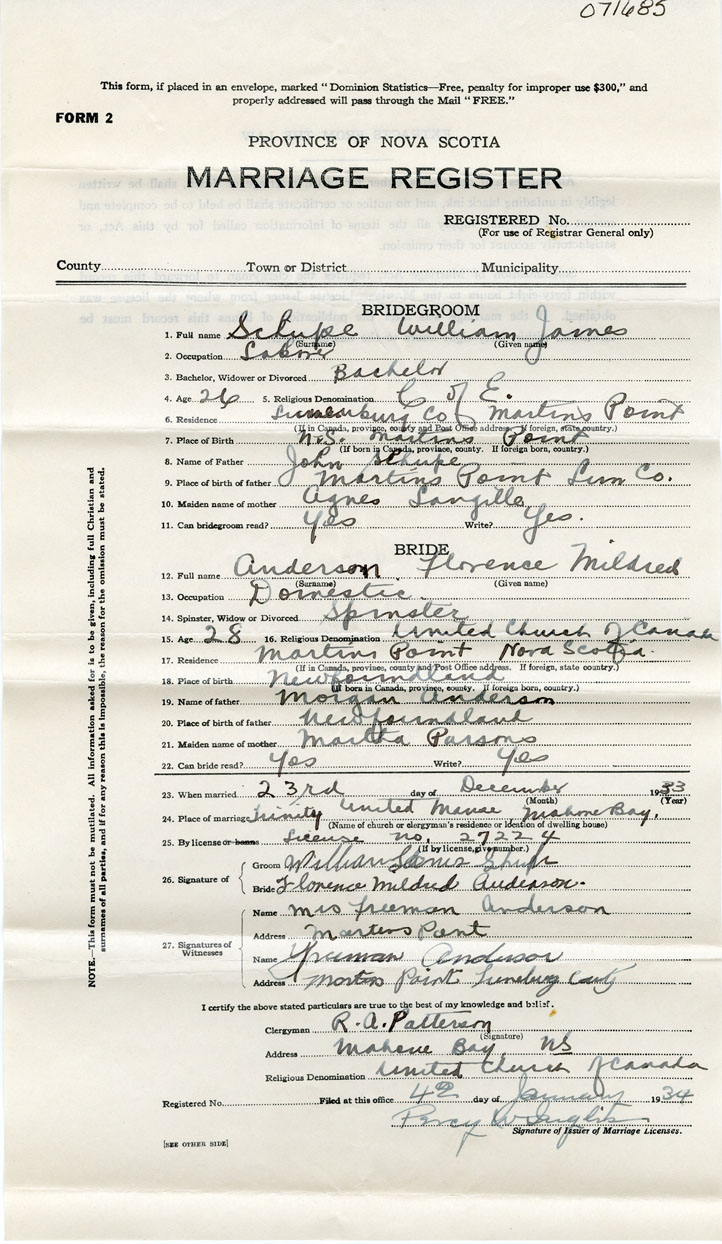 071685
This form, if placed in an envelope, marked "Dominion Statistics—Free, penalty for improper use $300," and
properly addressed will pass through the Mail "FREE."
FORM 2
PROVINCE OF NOVA SCOTIA
MARRIAGE REGISTER
REGISTERED No.
(For use of Registrar General only)
County Town or District Municipality
BRIDEGROOM
1. Full name Schupe William James
(Surname) (Given name)
2. Occupation Laborer
3. Bachelor, Widower or Divorced Bachelor
4. Age 26 5. Religious Denomination C of E.
6. Residence Lunenburg Co Martins Point
(If in Canada, province, county and Post Office address. If foreign, state country.)
7. Place of Birth N.S. Martins Point
(If born in Canada, province, county. If foreign born, country.)
8. Name of Father John Schupe
9. Place of birth of father Martins Point Lun Co.
10. Maiden name of mother Agnes Langille
11. Can bridegroom read? Yes Write? Yes.
BRIDE
12. Full name Anderson Florence Mildred
(Surname) (Given name)
13. Occupation Domestic
14. Spinster, Widow or Divorced Spinster
15. Age 28 16. Religious Denomination United Church of Canada
17. Residence Martins Point Nova Scotia
(If in Canada, province, county and Post Office address. If foreign, state country.)
18. Place of birth Newfoundland
(If born in Canada, province, county. If foreign born, country.)
19. Name of father Morgan Anderson
20. Place of birth of father Newfoundland
21. Maiden name of mother Martha Parsons
22. Can bride read? Yes Write? Yes
23. When married 23rd day of December 1933
(Month) (Year)
24. Place of marriage Trinity United Manse Mahone Bay.
(Name of church or clergyman's residence or idention of dwelling house)
25. By license or banns License no. 27224
(If by license, give number.)
26. Signature of Groom William James Shupe
Bride Florence Mildred Anderson.
27. Signatures of Witnesses Name Mrs Freeman Anderson
Address Martins Point
Name Freeman Anderson
Address Martins Point Lunenburg County
I certify the above stated particulars are true to the best of my knowledge and belief.
Clergyman R. A. Patterson
(Signature)
Address Mahone Bay NS
Religious Denomination United Church of Canada
Registered No. Filed at this office day of January 1934
Percy
Signature of Issuer of Marriage Licenses.
[SEE OTHER SIDE]
NOTE.—This form must not be mutilated. All information asked for is to be given, including full Christian and
surnames of all parties, and if for any reason this is impossible, the reason for the omission must be stated.